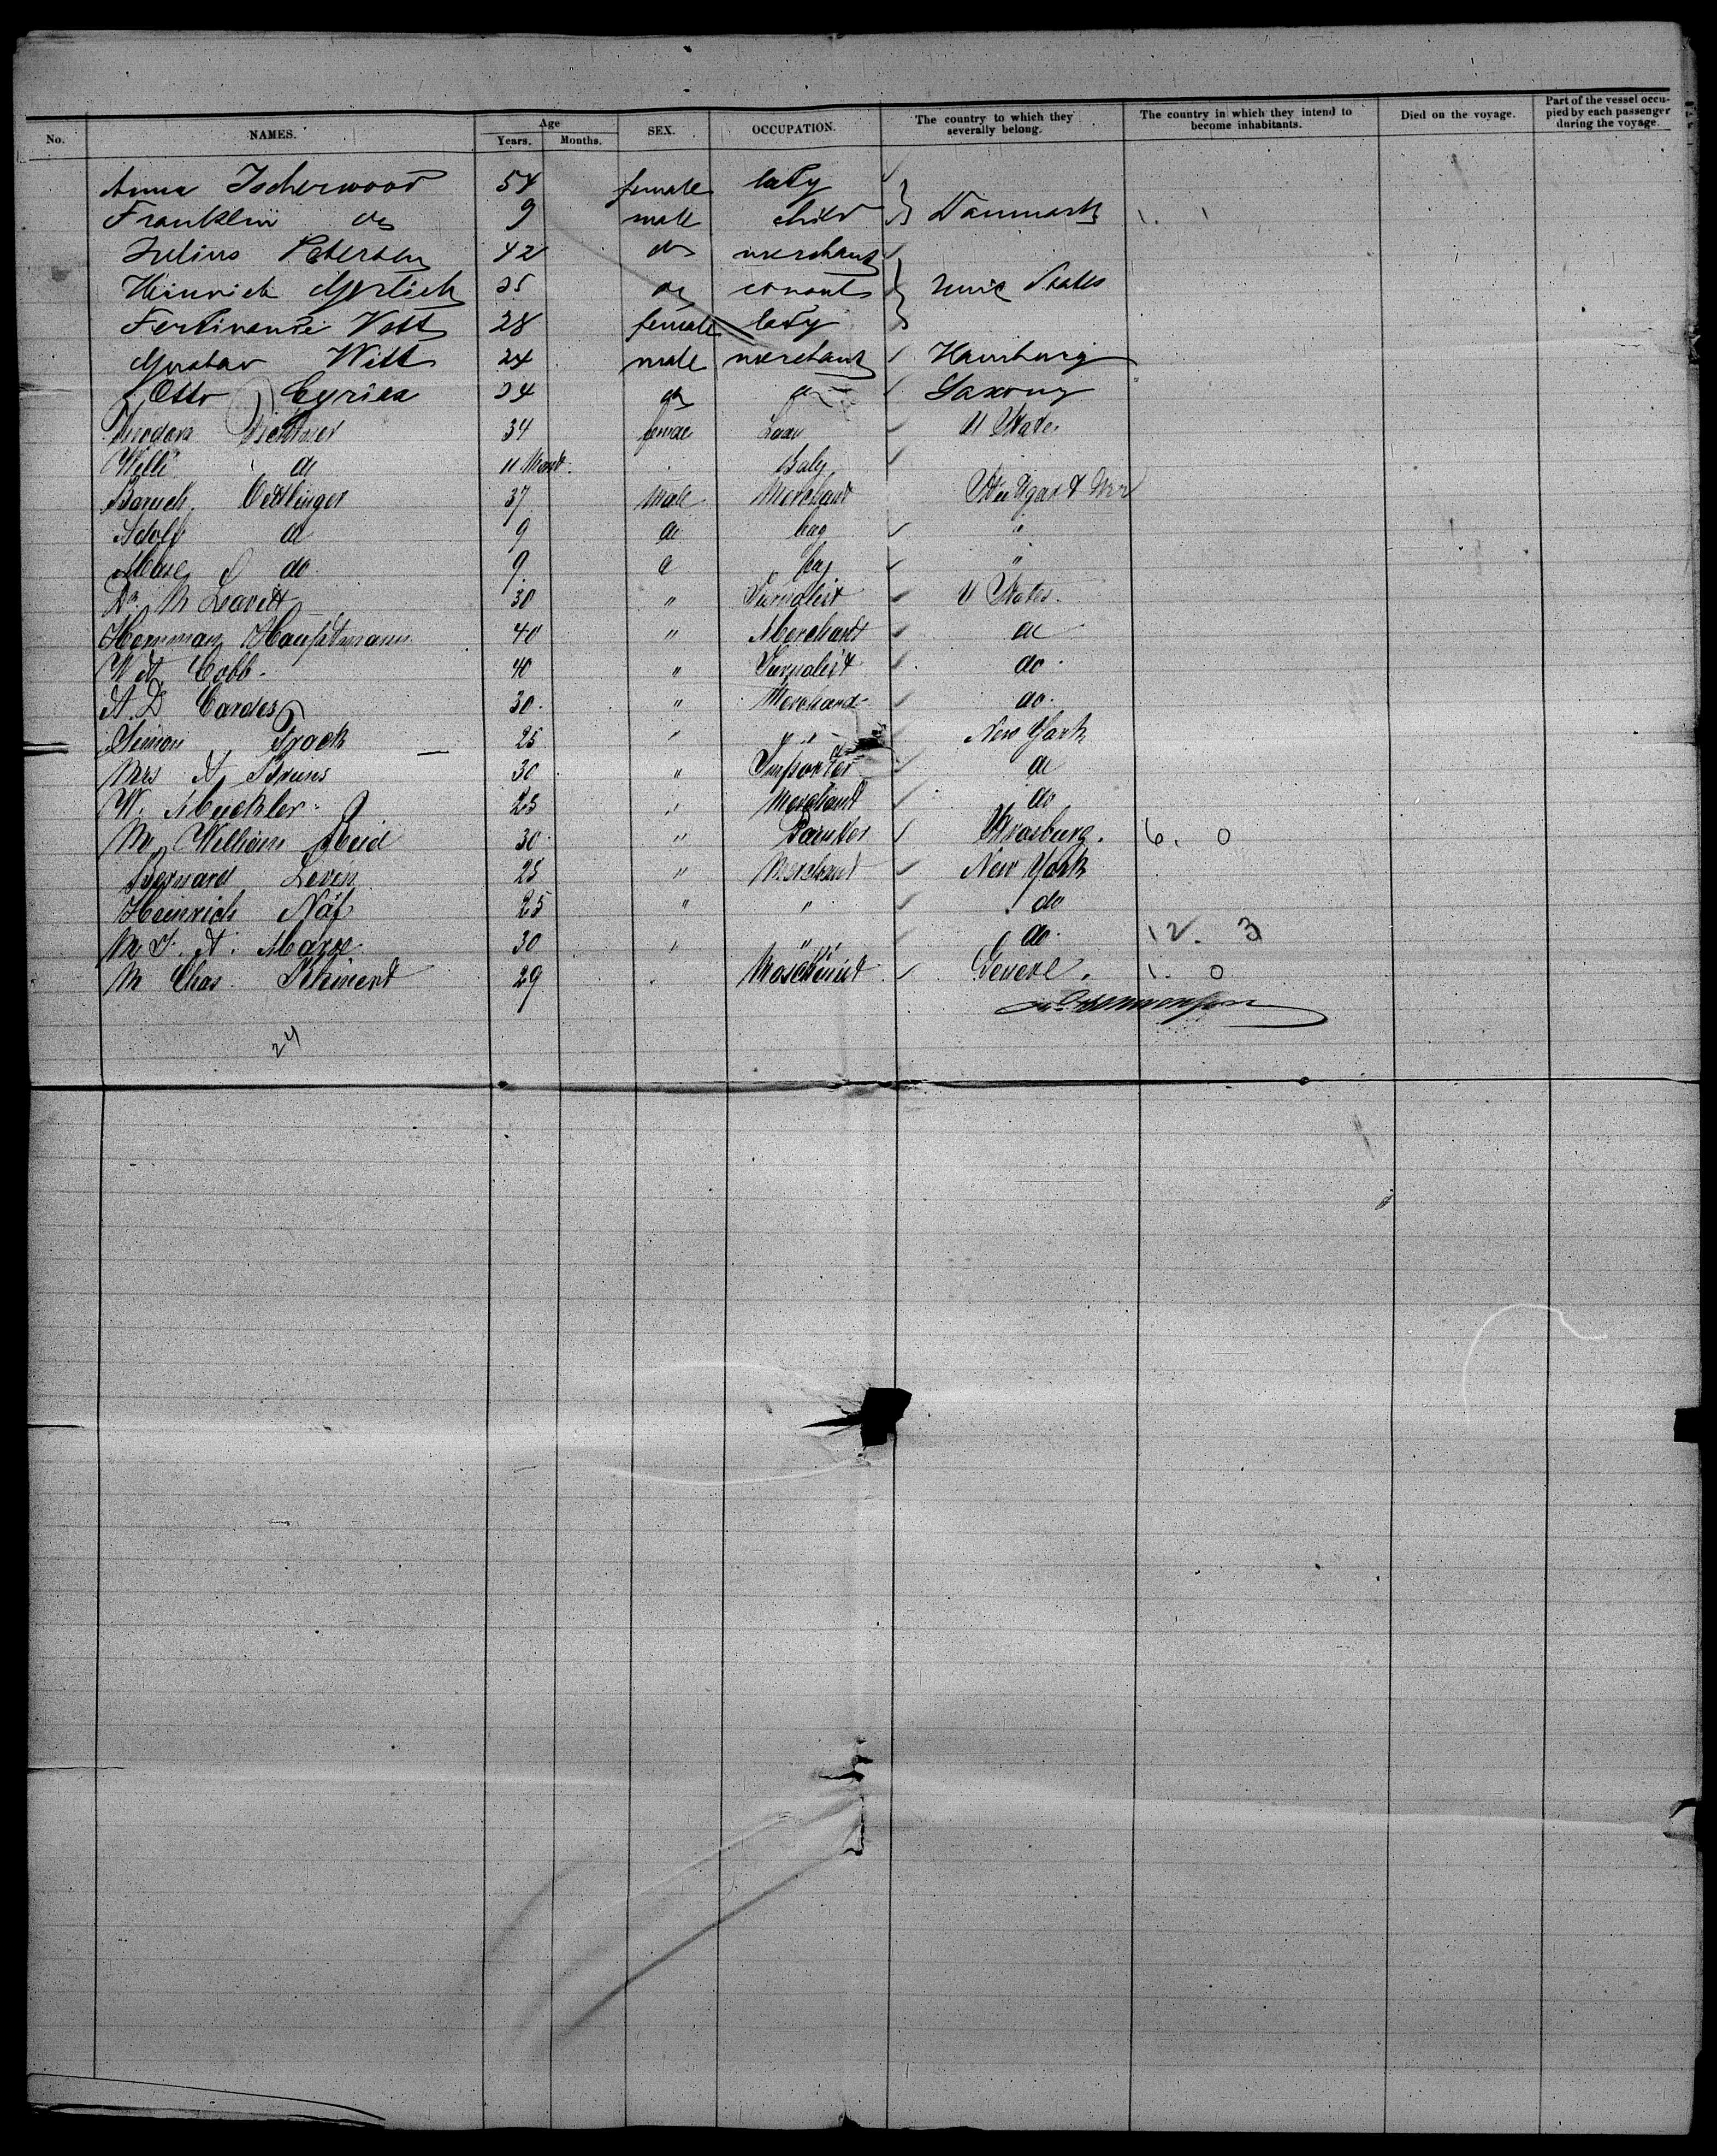 No. NAMES. Age Years. Months. SEX. OCCUPATION. The country to which they severally belong. The country in which they intend to become inhabitants. Died on the voyage. Part of the vessel occupied by each passenger during the voyage.
Anna Ischerwood 54 female lady
Franklin do 9 male child } Danmark
Julius Petersen 42 do merchant
Heinrich 25 do } States
Ferdinande Vett 28 female lady
Gustav Witt 24 male merchant Hamburg
Otto Cyriax 24 do do Saxony
Theodora 34 female U States
Willi do 11 Mont. Baby
Baruch Oettlinger 37 Male Merchant Stuttgart
Adolf do 9 do boy "
do 9 boy "
Dr. M Leavitt 30 " Jurnalist U States.
Herrman Hauptmann 40 " Merchant do
W A. Cobb. 40 " Jurnalist do.
A. D. Cardes 30. " Merchand do.
Simon 25 " " New York
Mrs A. Bruns 30 " Importer do
W. Muckler. 25 " Merchant do
Mr William Reid 30. " Strasburg. 6. 0
Bernard Levin 25 " Merchant New York
Heinrich Näf 25 " " do
A. Marxe. 30 " " do. 12. 3
M Chas. 29 Maschinist Geneve. 1. 0
24